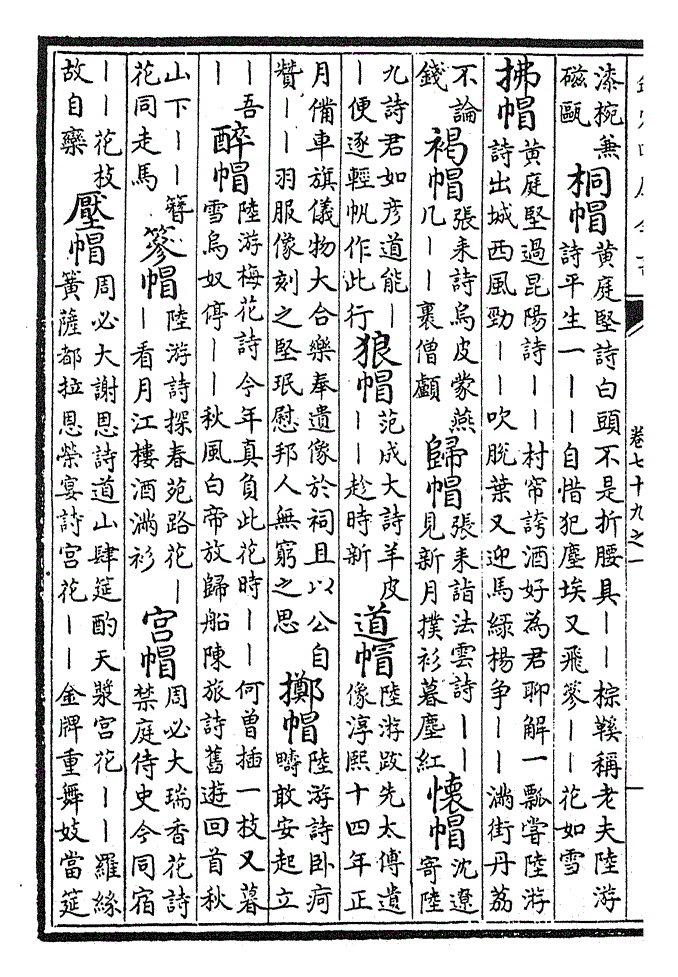 卷七十九之一
漆椀兼
磁甌
桐帽
黄庭堅詩白頭不是折腰具丨丨棕鞵稱老夫陸游
詩平生一丨丨自惜犯塵埃又飛篸丨丨花如雪
拂帽
黄庭堅過昆陽詩丨丨村帘誇酒好為君聊解一瓢嘗陸游
詩出城西風勁丨丨吹脱葉又迎馬緑楊争丨丨滿街丹荔
不論
錢
褐帽
張耒詩烏皮蒙燕
几丨丨裹僧顱
歸帽
張耒詣法雲詩丨丨
見新月撲衫暮塵紅
懷帽
沈遼
寄陸
九詩君如彦道能丨
丨便逐輕帆作此行
狼帽
范成大詩羊皮
丨丨趁時新
道帽
陸游跋先太傅遺
像淳熙十四年正
月備車旗儀物大合樂奉遺像於祠且以公自
贊丨丨羽服像刻之堅珉慰邦人無窮之思
擲帽
陸游詩卧疴
疇敢安起立
丨吾
丨
醉帽
陸游梅花詩今年真負此花時丨丨何曾插一枝又暮
雪烏奴停丨丨秋風白帝放歸船陳旅詩舊遊回首秋
山下丨丨簪
花同走馬
篸帽
陸游詩探春苑路花丨
丨看月江樓酒滿衫
宫帽
周必大瑞香花詩
禁庭侍史今同宿
丨丨花枝
故自藥
壓帽
周必大謝恩詩道山肆筵酌天漿宫花丨丨羅緣
簧薩都拉恩榮宴詩宫花丨丨金牌重舞妓當筵